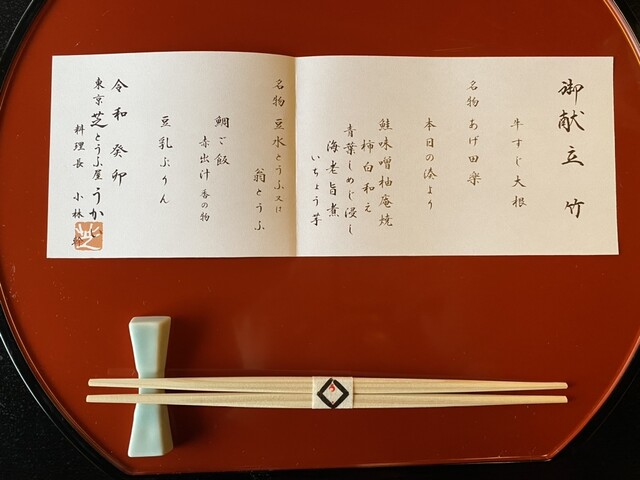 御献立 竹
牛すじ大根
名物 あげ田楽
本日の湊より
鮭味噌柚庵焼
柿白和え
青葉しめじ浸し
海老旨煮
いちょう芋
名物 豆水とうふ 又は
翁とうふ
鯛ご飯
赤出汁 香の物
豆乳ぷりん
令和 癸卯
東京 芝 とうふ屋 うかい
料理長 小林